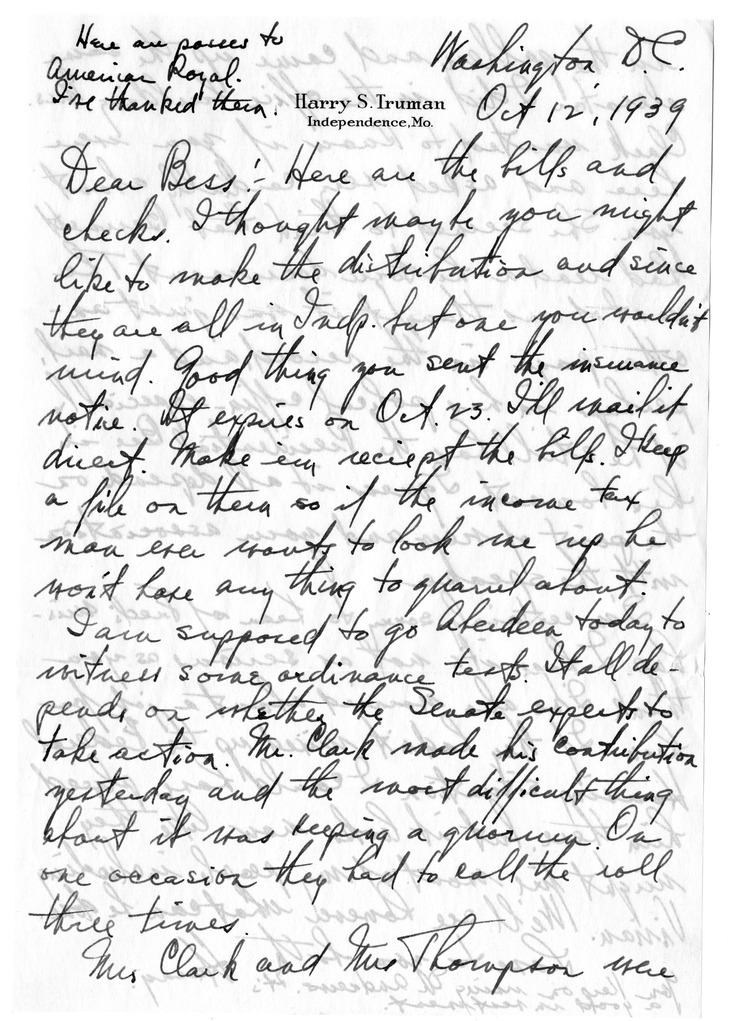 Here are passes to
American Royal.
I've thanked them.
Harry S. Truman
Independence, Mo.
Washington, D.C.
Oct 12, 1939
Dear Bess:- Here are the bills and
checks. I thought maybe you might
like to make the distribution and since
they are all in Indp. but one you wouldn't
mind. Good thing you sent the insurance
notice. It expires on Oct. 23. I'll mail it
direct. Make em reciept the bills. I keep
a file on them so if the income tax
man ever wants to look me up he
won't have any thing to quarrel about.
I am supposed to go Aberdeen today to
witness some ordinance tests. It all de-
pends on whether the Senate expects to
take action. Mr. Clark made his contribution
yesterday and the most difficult thing
about it was keeping a quorum. On
one occasion they had to call the roll
three times.
Mrs Clark and Mrs Thompson were